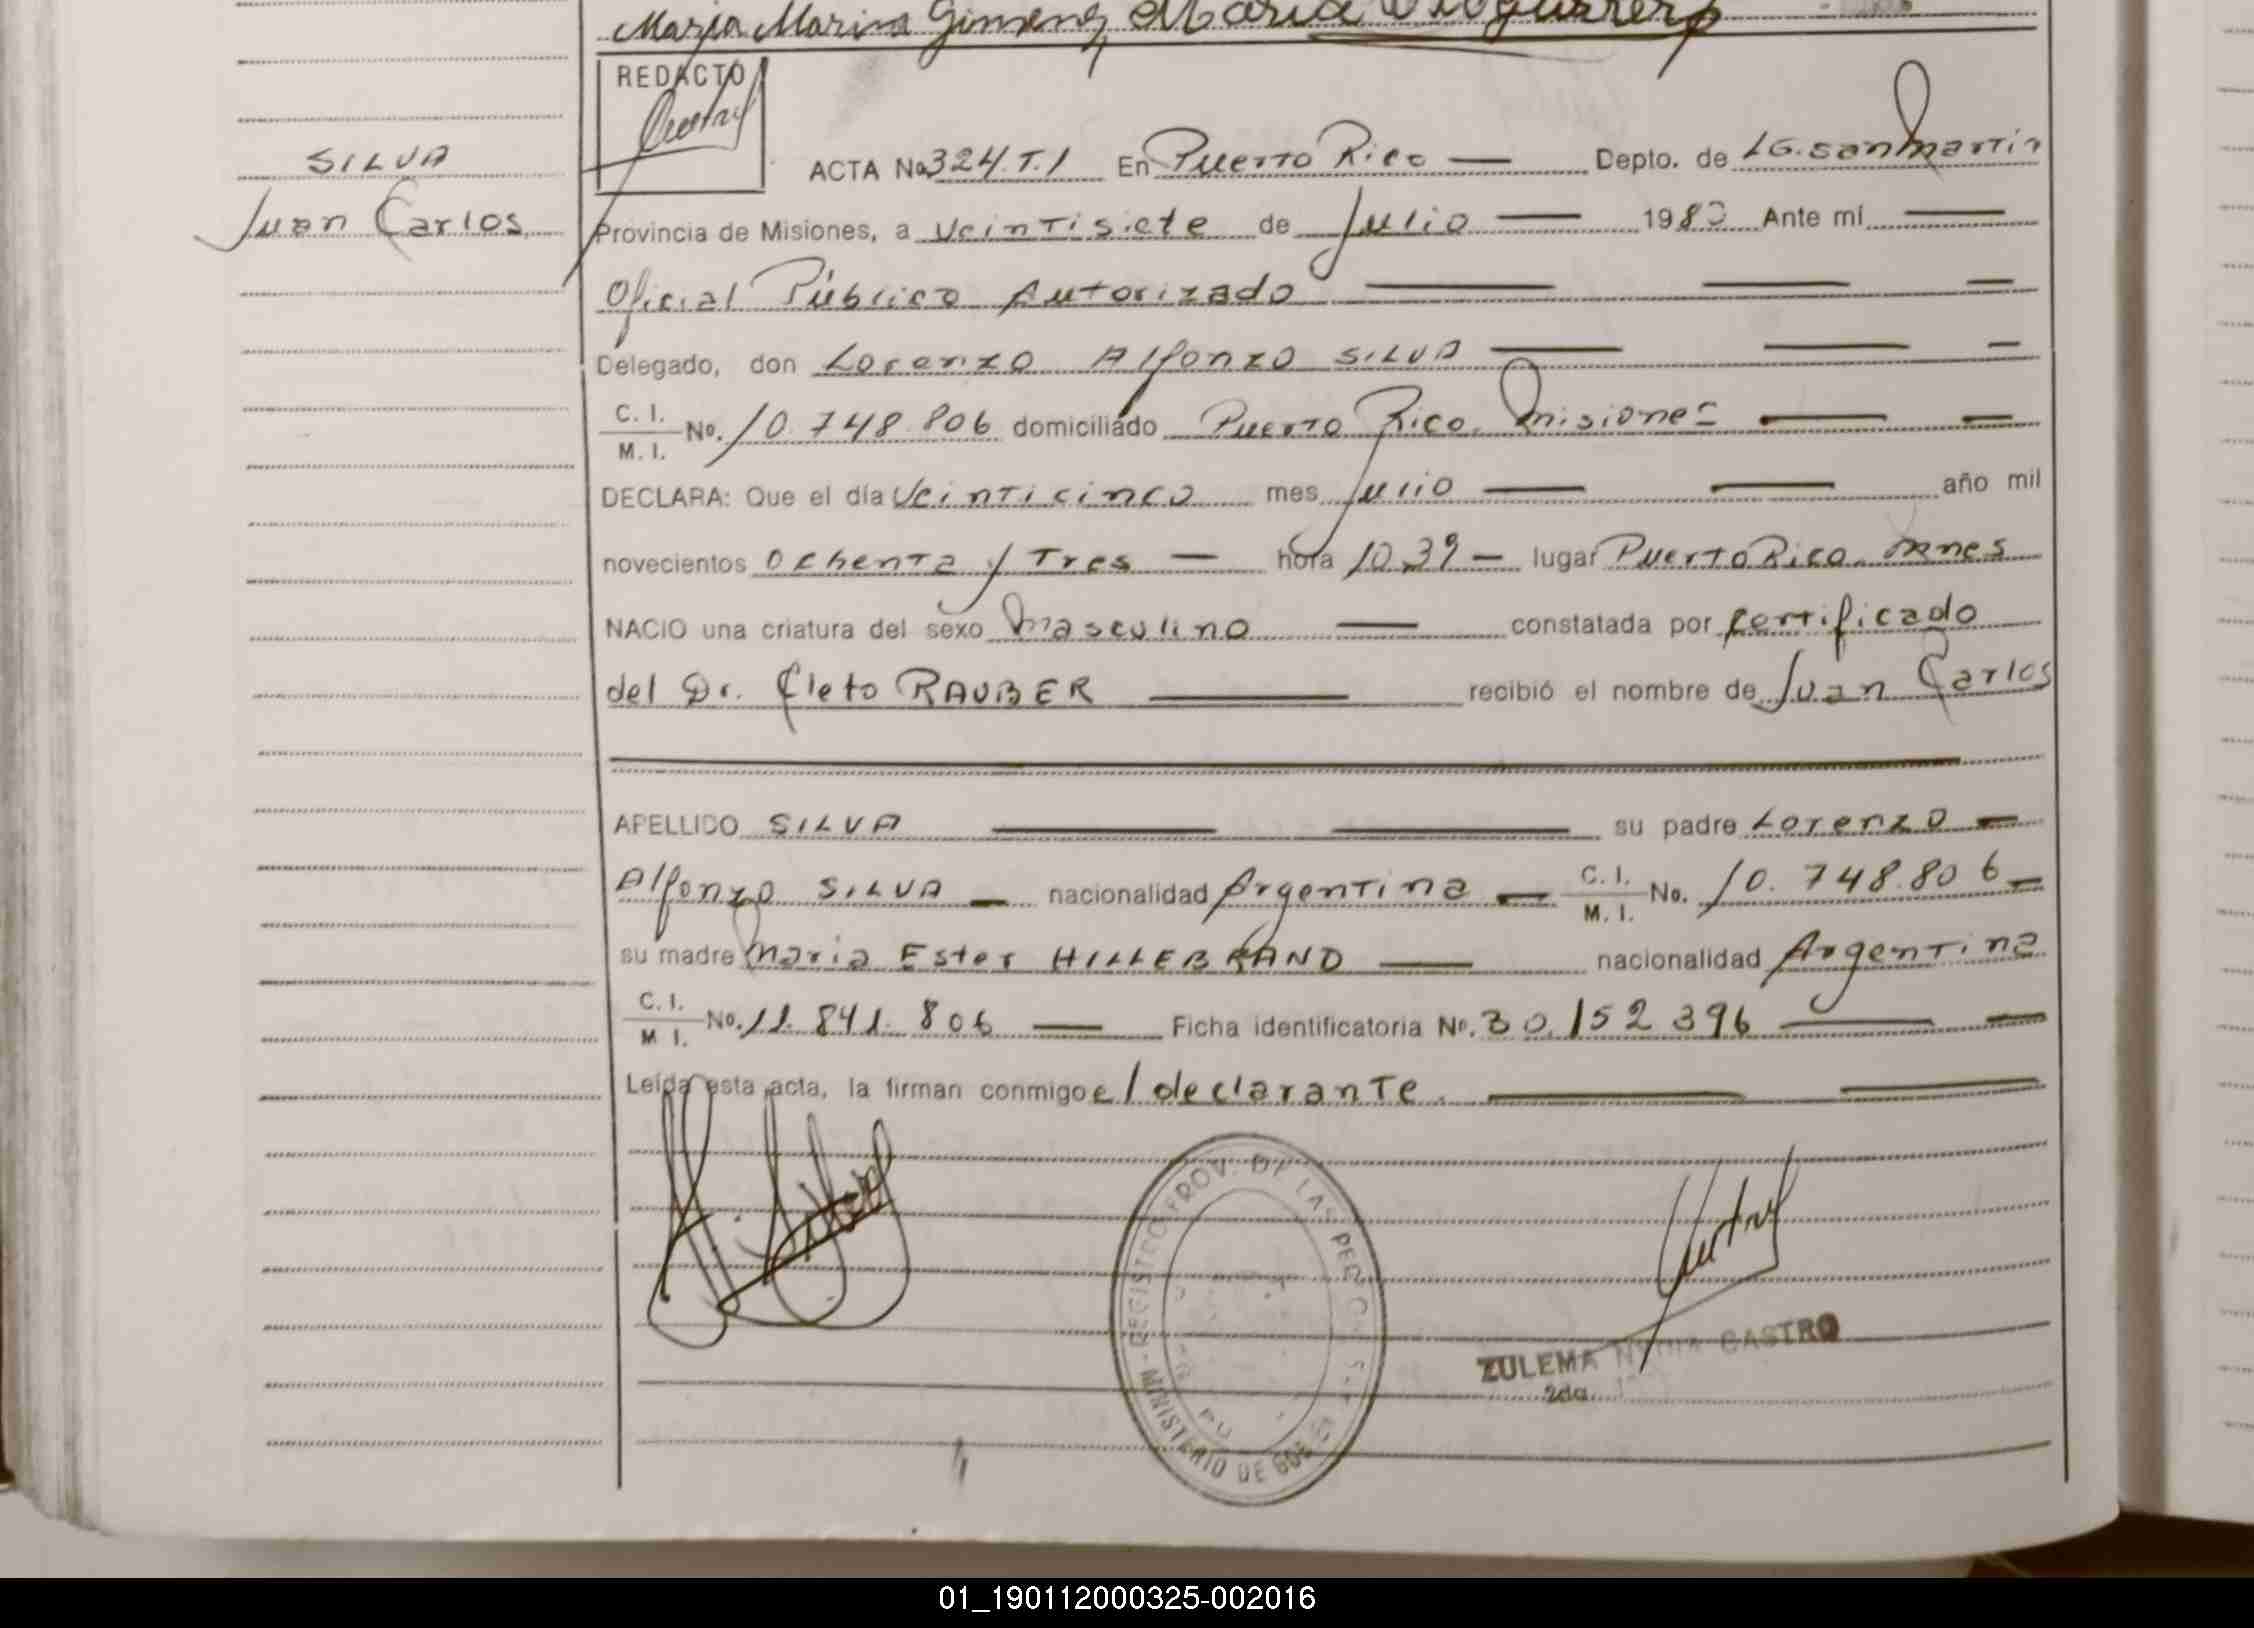 Maria Marina Gimenez
REDACTO
SILVA
Juan Carlos
ACTA No 324.T.1 En Puerto Rico — Depto. de LG. san Martín
Provincia de Misiones, a veintisiete de Julio — 1983 Ante mí —
Oficial Público Autorizado — — —
Delegado, don Lorenzo Alfonzo SILVA — — —
C. I. / M. I. No. 10.748.806 domiciliado Puerto Rico. Misiones — —
DECLARA: Que el día veinticinco mes Julio — — año mil
novecientos ochenta y Tres — hora 10.39 — lugar Puerto Rico. Mnes
NACIO una criatura del sexo masculino — constatada por certificado
del Dr. Cleto RAUBER — recibió el nombre de Juan Carlos
APELLIDO SILVA — — su padre Lorenzo —
Alfonzo SILVA — nacionalidad Argentina — C. I. / M. I. No. 10.748.806 —
su madre Maria Ester HILLEBRAND — nacionalidad Argentina
C. I. / M. I. No. 11.841.806 — Ficha identificatoria No. 30.152 396 — —
Leída esta acta, la firman conmigo el declarante. — —
REGISTRO PROV. DE LAS PERSONAS
MINISTERIO DE GOB
ZULEMA CASTRO
2da.
01_190112000325-002016